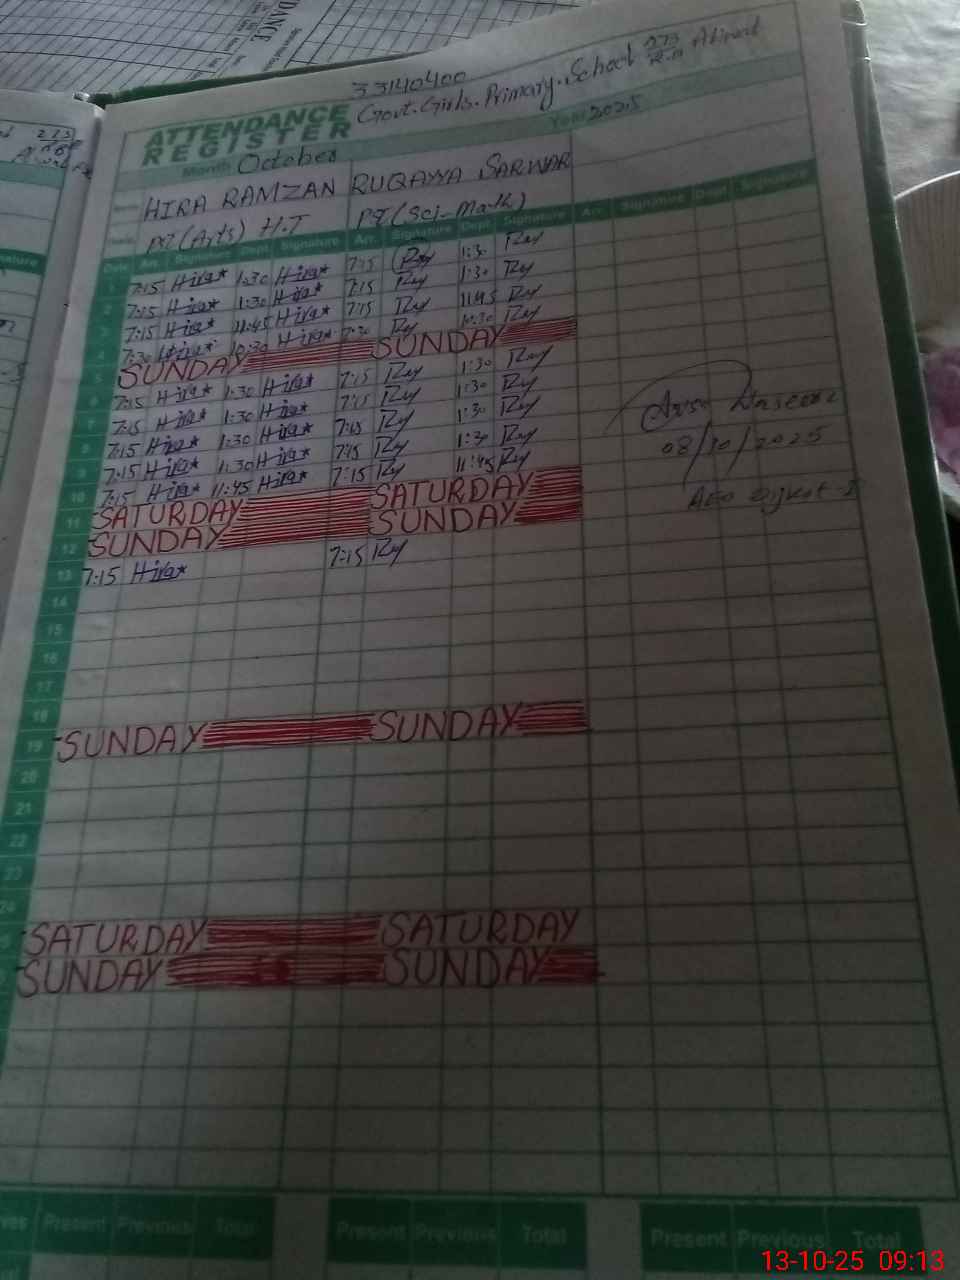 33140400
Govt. Girls. Primary. School 273 R.B Abiand
ATTENDANCE
REGISTER
Month October Year 2025
Name HIRA RAMZAN RUQAYYA SARWAR
PST (Arts) H.T PST (Sci-Math)
Date Arr. Signature Dept Signature Arr. Signature Dept Signature Arr. Signature Dept Signature
1 7:15 Hira* 1:30 Hira* 7:15 Ry 1:30 Ry
2 7:15 Hira* 1:30 Hira* 7:15 Ry 1:30 Ry
3 7:15 Hira* 11:45 Hira* 7:15 Ry 11:45 Ry
4 7:30 Hira* 10:30 Hira* 7:30 Ry 10:30 Ry
5 SUNDAY SUNDAY
6 7:15 Hira* 1:30 Hira* 7:15 Ry 1:30 Ry
7 7:15 Hira* 1:30 Hira* 7:15 Ry 1:30 Ry
8 7:15 Hira* 1:30 Hira* 7:15 Ry 1:30 Ry
08/10/2025
9 7:15 Hira* 1:30 Hira* 7:15 Ry 1:30 Ry
10 7:15 Hira* 11:45 Hira* 7:15 Ry 11:45 Ry
AEO
11 SATURDAY SATURDAY
12 SUNDAY SUNDAY
13 7:15 Hira* 7:15 Ry
14
15
16
17
18
19 SUNDAY SUNDAY
20
21
22
23
24
SATURDAY SATURDAY
SUNDAY SUNDAY
Present Previous Total Present Previous Total Present Previous Total
13-10-25 09:13